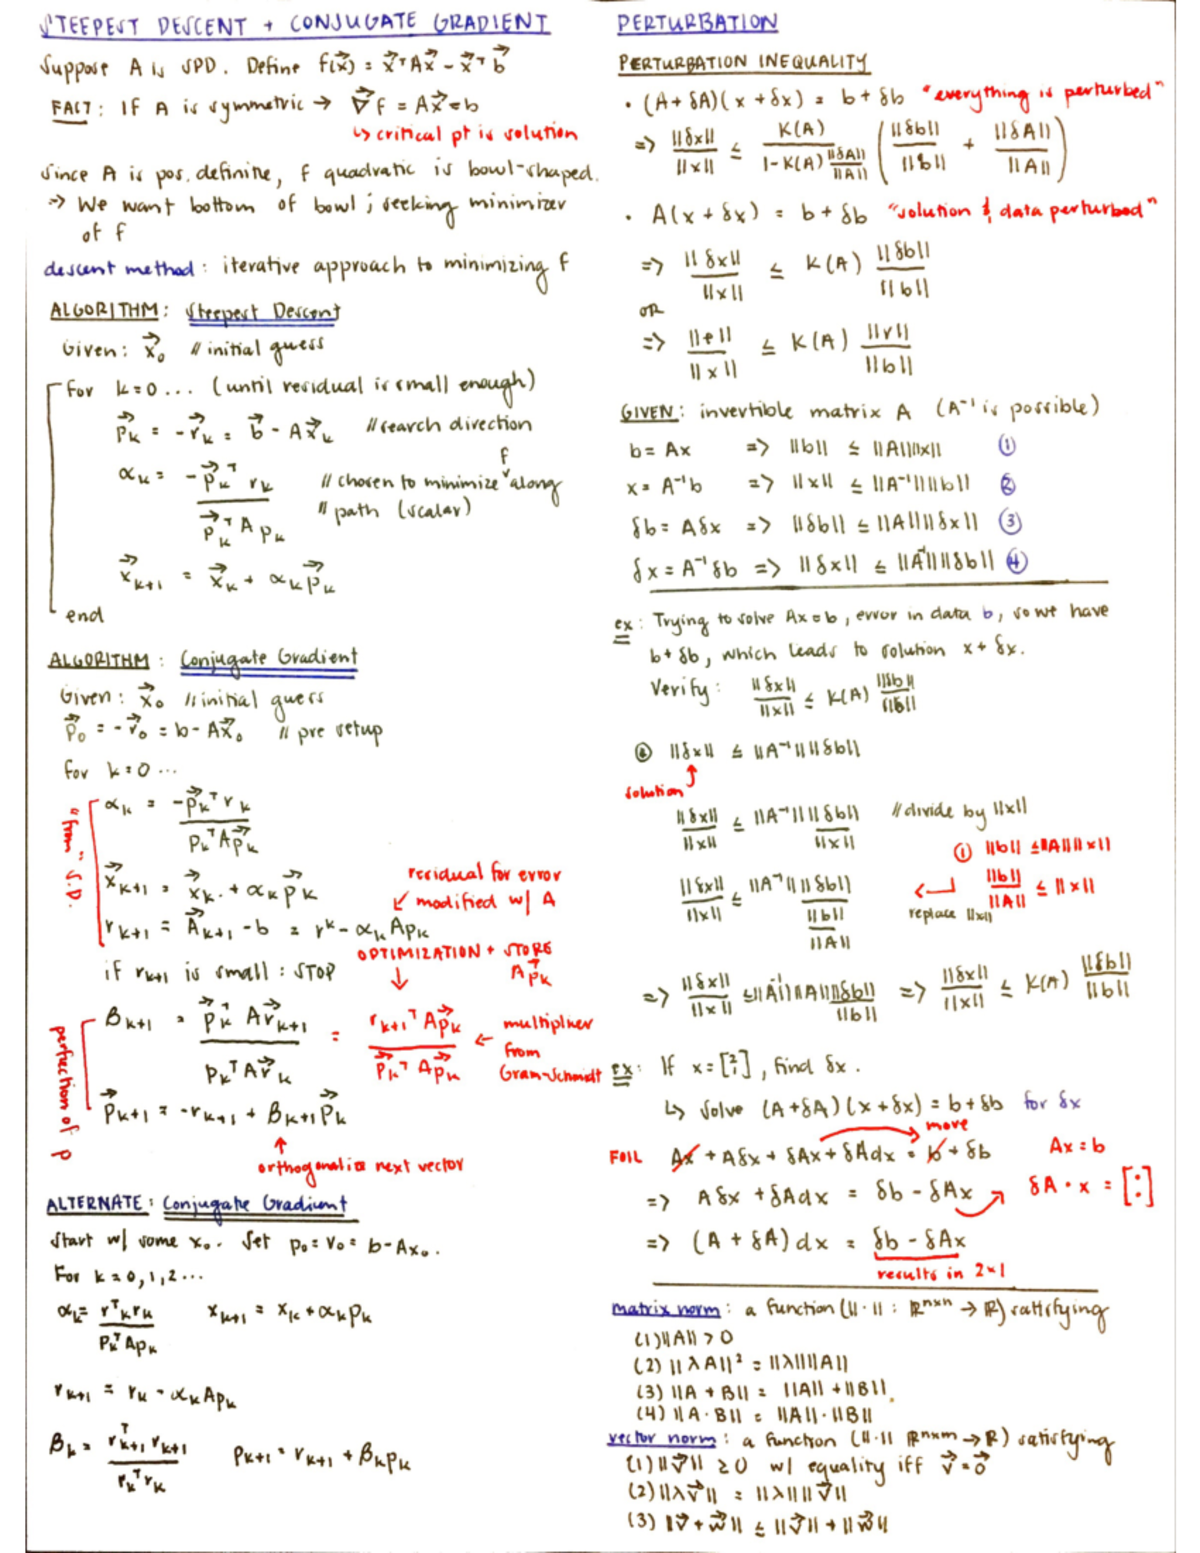 STEEPEST DESCENT + CONJUGATE GRADIENT
Suppose A is SPD. Define f(x⃗) = x⃗ᵀAx⃗ - x⃗ᵀb⃗
FACT: If A is symmetric → ∇⃗f = Ax⃗=b
↳ critical pt is solution
Since A is pos. definite, f quadratic is bowl-shaped.
→ We want bottom of bowl; seeking minimizer
of f
descent method: iterative approach to minimizing f
ALGORITHM: Steepest Descent
Given: x⃗₀ // initial guess
For k=0... (until residual is small enough)
p⃗ₖ = -r⃗ₖ = b⃗ - Ax⃗ₖ // search direction
αₖ = -p⃗ₖᵀrₖ / p⃗ₖᵀApₖ // chosen to minimize f along
// path (scalar)
x⃗ₖ₊₁ = x⃗ₖ + αₖp⃗ₖ
end
ALGORITHM: Conjugate Gradient
Given: x⃗₀ // initial guess
p⃗₀ = -r⃗₀ = b-Ax⃗₀ // pre setup
for k=0...
"from" S.D.
αₖ = -p⃗ₖᵀrₖ / pₖᵀAp⃗ₖ
x⃗ₖ₊₁ = x⃗ₖ + αₖp⃗ₖ
residual for error
↙ modified w/ A
rₖ₊₁ = A⃗ₖ₊₁ - b = rᵏ - αₖApₖ
OPTIMIZATION + STORE
Ap⃗ₖ
if rₖ₊₁ is small: STOP
perfection of p
Βₖ₊₁ = p⃗ₖᵀAr⃗ₖ₊₁ / pₖᵀAr⃗ₖ = rₖ₊₁ᵀAp⃗ₖ / p⃗ₖᵀAp⃗ₖ ← multiplier
from
Gram-Schmidt
p⃗ₖ₊₁ = -rₖ₊₁ + Βₖ₊₁p⃗ₖ
orthogonalize next vector
ALTERNATE: Conjugate Gradient
Start w/ some x₀. Set p₀ = r₀ = b-Ax₀.
For k=0,1,2...
αₖ = rᵀₖrₖ / pₖᵀApₖ xₖ₊₁ = xₖ + αₖpₖ
rₖ₊₁ = rₖ - αₖApₖ
Βₖ = rᵀₖ₊₁rₖ₊₁ / rₖᵀrₖ pₖ₊₁ = rₖ₊₁ + Βₖpₖ
PERTURBATION
PERTURBATION INEQUALITY
• (A+δA)(x+δx) = b+δb "everything is perturbed"
⇒ ||δx|| / ||x|| ≤ K(A) / (1-K(A) ||δA||/||A||) (||δb||/||b|| + ||δA||/||A||)
• A(x+δx) = b+δb "solution & data perturbed"
⇒ ||δx|| / ||x|| ≤ K(A) ||δb|| / ||b||
OR
⇒ ||e|| / ||x|| ≤ K(A) ||r|| / ||b||
GIVEN: invertible matrix A (A⁻¹ is possible)
b=Ax ⇒ ||b|| ≤ ||A||||x|| ①
x=A⁻¹b ⇒ ||x|| ≤ ||A⁻¹||||b|| ②
δb=Aδx ⇒ ||δb|| ≤ ||A||||δx|| ③
δx=A⁻¹δb ⇒ ||δx|| ≤ ||A⁻¹||||δb|| ④
ex: Trying to solve Ax=b, error in data b, so we have
b+δb, which leads to solution x+δx.
Verify: ||δx|| / ||x|| ≤ K(A) ||δb|| / ||b||
④ ||δx|| ≤ ||A⁻¹||||δb||
solution
||δx|| / ||x|| ≤ ||A⁻¹||||δb|| / ||x|| // divide by ||x||
① ||b|| ≤ ||A||||x||
||δx|| / ||x|| ≤ ||A⁻¹||||δb|| / (||b|| / ||A||) ↵ ||b|| / ||A|| ≤ ||x||
replace ||x||
⇒ ||δx|| / ||x|| ≤ ||A⁻¹||||A||||δb|| / ||b|| ⇒ ||δx|| / ||x|| ≤ K(A) ||δb|| / ||b||
ex: If x=[2 1], find δx.
↳ solve (A+δA)(x+δx) = b+δb for δx
move
FOIL Ax + Aδx + δAx + δAdx = b + δb Ax=b
⇒ Aδx + δAdx = δb - δAx δA·x = [: ]
⇒ (A + δA)dx = δb - δAx
results in 2×1
matrix norm: a function (||·|| : ℝⁿˣⁿ → ℝ) satisfying
(1) ||A|| > 0
(2) ||λA||² = ||λ||||A||
(3) ||A + B|| = ||A|| + ||B||
(4) ||A·B|| = ||A||·||B||
vector norm: a function (||·|| ℝⁿˣᵐ → ℝ) satisfying
(1) ||v⃗|| ≥ 0 w/ equality iff v⃗ = 0⃗
(2) ||λv⃗|| = ||λ||||v⃗||
(3) ||v⃗ + w⃗|| ≤ ||v⃗|| + ||w⃗||